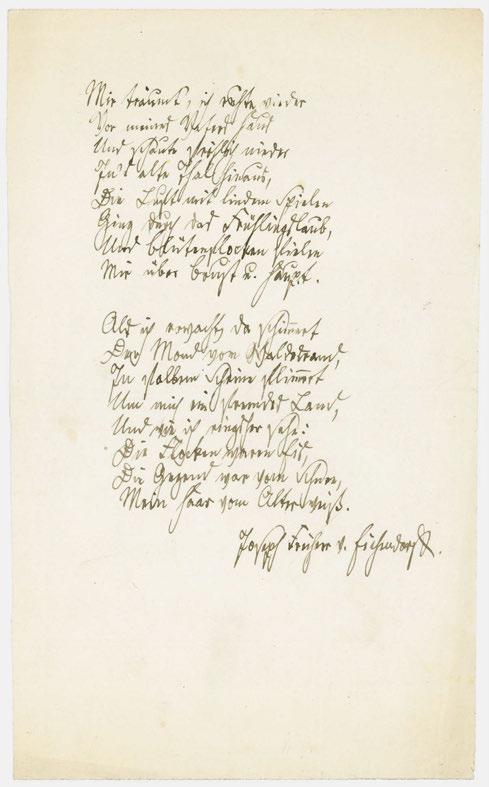 Mir träumt', ich ruhte wieder
Vor meines Vaters Haus
Und schaute fröhlich nieder
In's alte Thal hinaus,
Die Luft mit lindem Spielen
Ging durch das Frühlingslaub,
Und Blütenflocken fielen
Mir über Brust u. Haupt.
Als ich erwacht, da schimmert
Der Mond vom Waldesrand,
Im falben Scheine flimmert
Um mich ein fremdes Land,
Und wie ich ringsher sehe:
Die Flocken waren Eis,
Die Gegend war vom Schnee,
Mein Haar vom Alter weiß.
Joseph Freiherr v. Eichendorff.